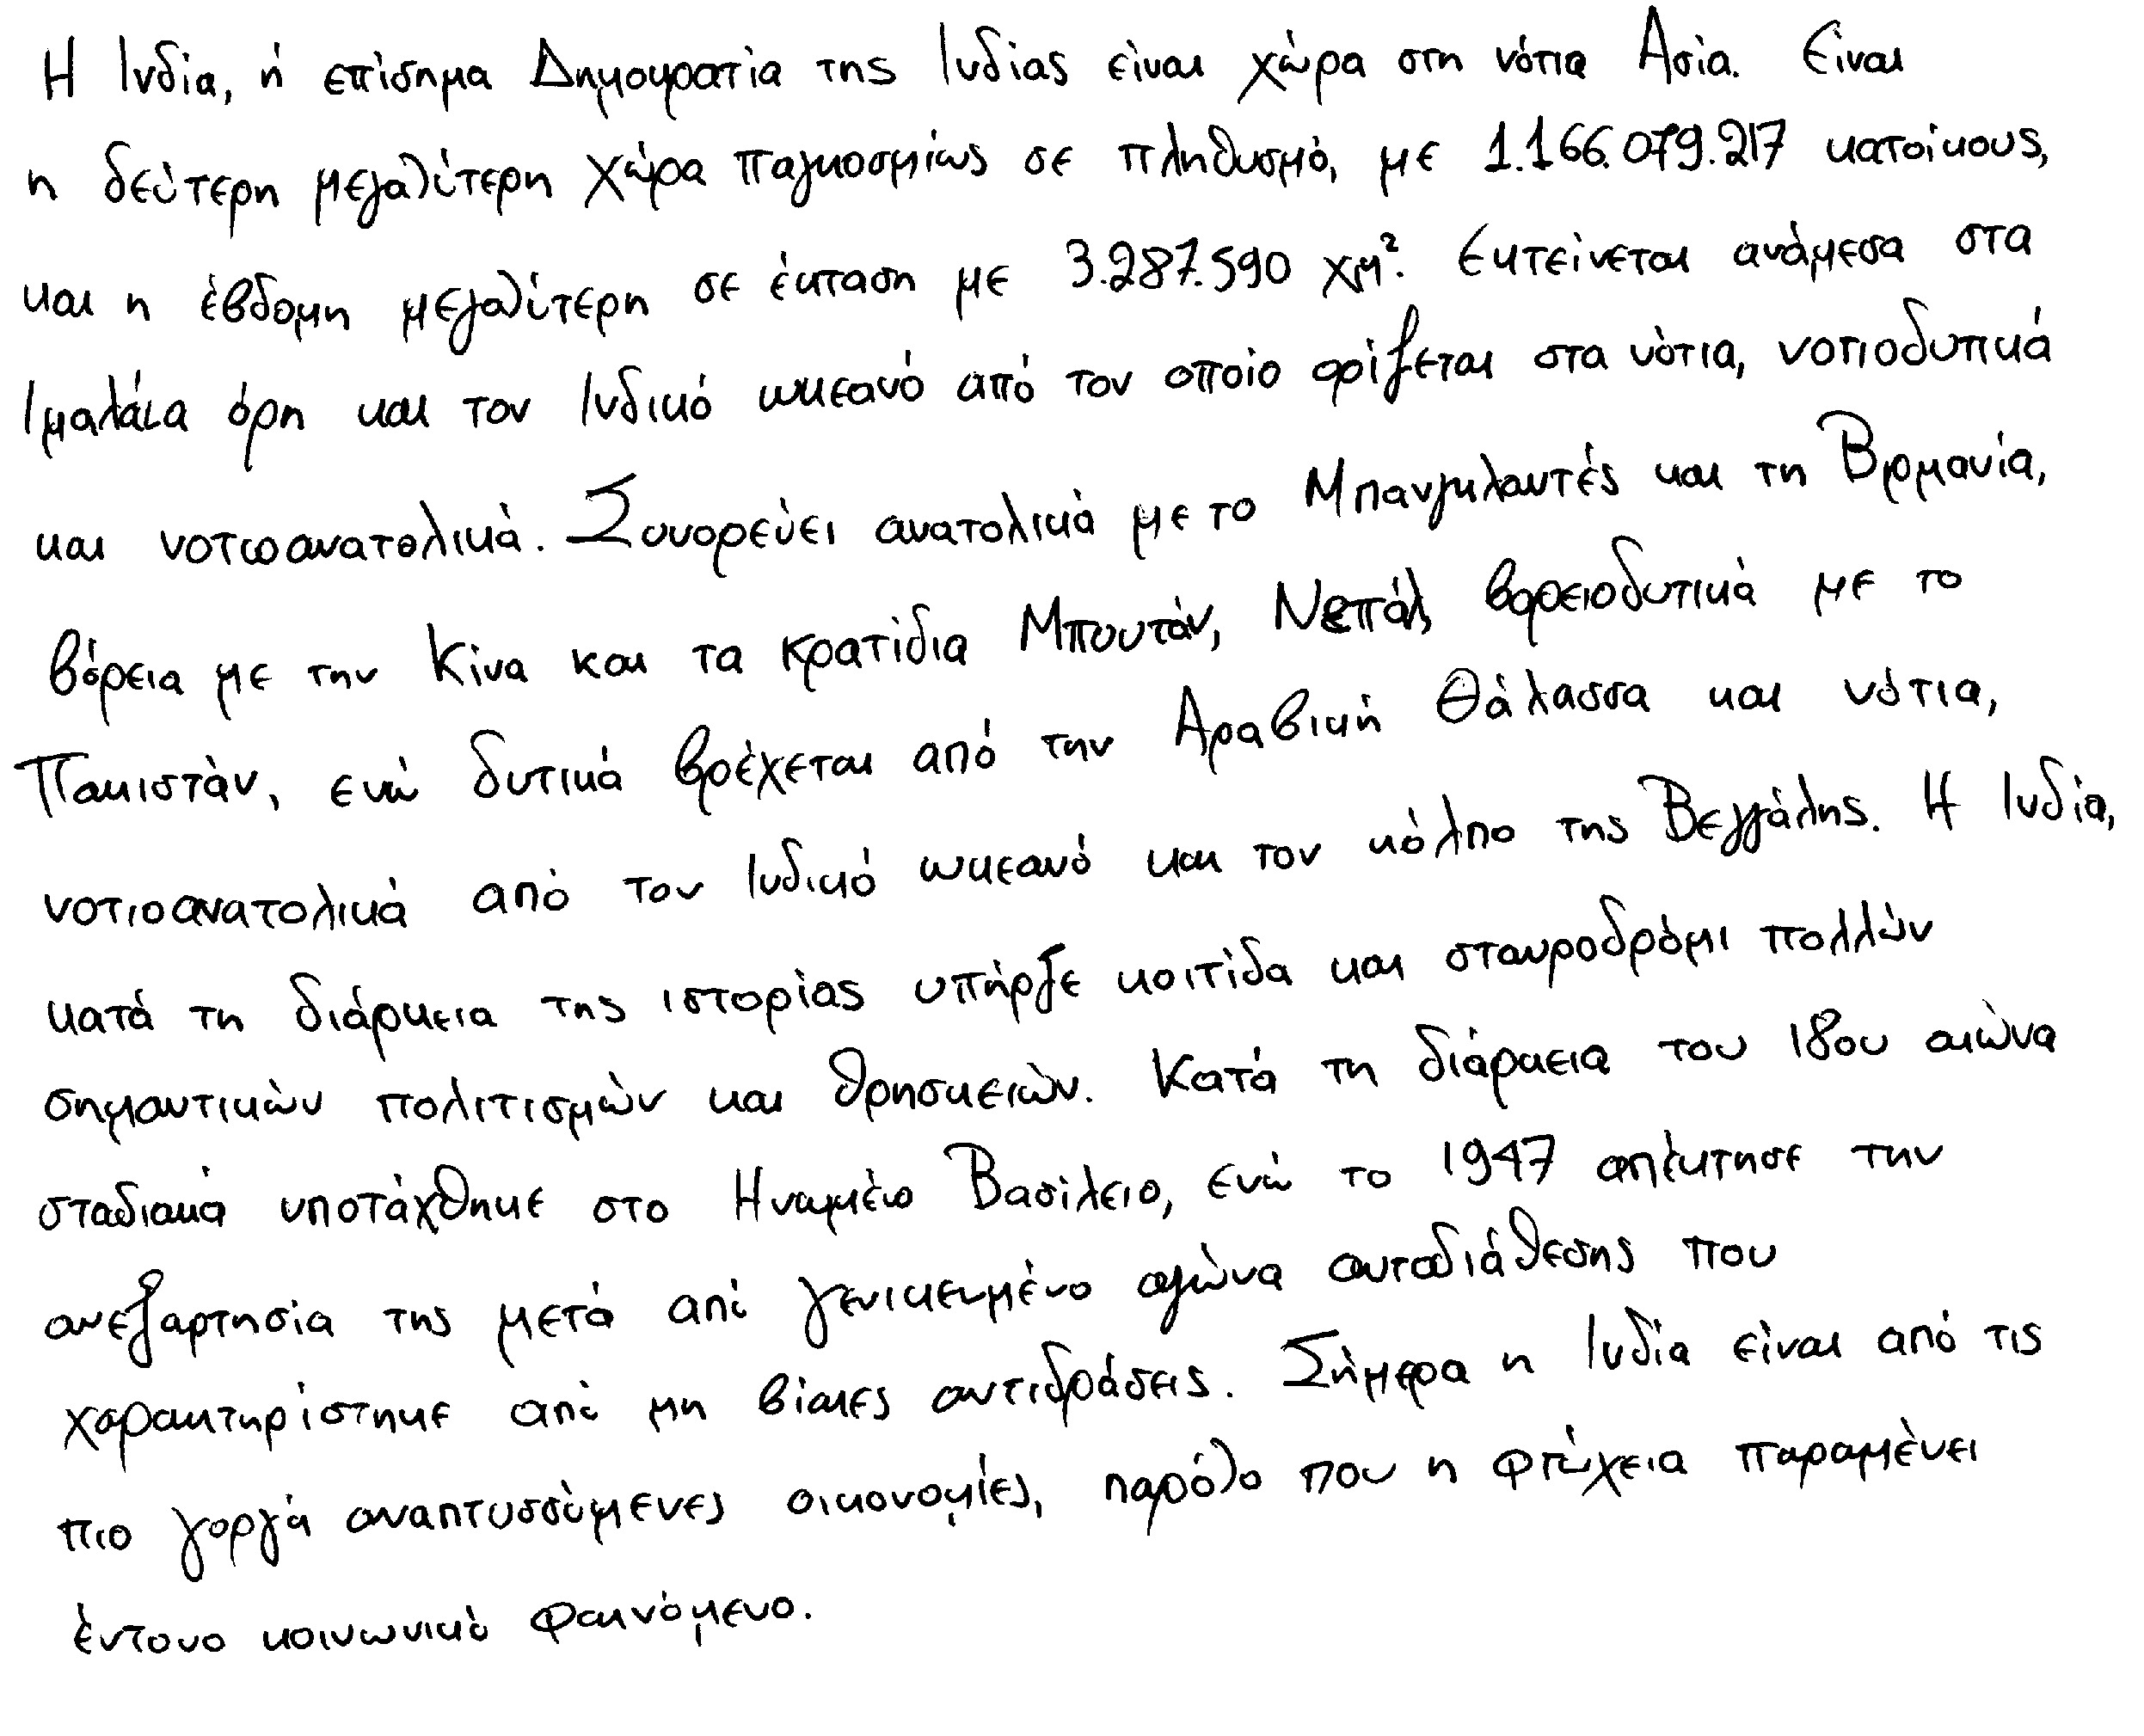 Η Ινδία, ή επίσημα Δημοκρατία της Ινδίας είναι χώρα στη νότια Ασία. Είναι
η δεύτερη μεγαλύτερη χώρα παγκοσμίως σε πληθυσμό, με 1.166.079.217 κατοίκους,
και η έβδομη μεγαλύτερη σε έκταση με 3.287.590 χμ². Εκτείνεται ανάμεσα στα
Ιμαλάια όρη και τον Ινδικό ωκεανό από τον οποίο ορίζεται στα νότια, νοτιοδυτικά
και νοτιοανατολικά. Συνορεύει ανατολικά με το Μπανγκλαντές και τη Βιρμανία,
βόρεια με την Κίνα και τα κρατίδια Μπουτάν, Νεπάλ, βορειοδυτικά με το
Πακιστάν, ενώ δυτικά βρέχεται από την Αραβική Θάλασσα και νότια,
νοτιοανατολικά από τον Ινδικό ωκεανό και τον κόλπο της Βεγγάλης. Η Ινδία,
κατά τη διάρκεια της ιστορίας υπήρξε κοιτίδα και σταυροδρόμι πολλών
σημαντικών πολιτισμών και θρησκειών. Κατά τη διάρκεια του 18ου αιώνα
σταδιακά υποτάχθηκε στο Ηνωμένο Βασίλειο, ενώ το 1947 απέκτησε την
ανεξαρτησία της μετά από γενικευμένο αγώνα αυτοδιάθεσης που
χαρακτηρίστηκε από μη βίαιες αντιδράσεις. Σήμερα η Ινδία είναι από τις
πιο γοργά αναπτυσσόμενες οικονομίες, παρόλο που η φτώχεια παραμένει
έντονο κοινωνικό φαινόμενο.